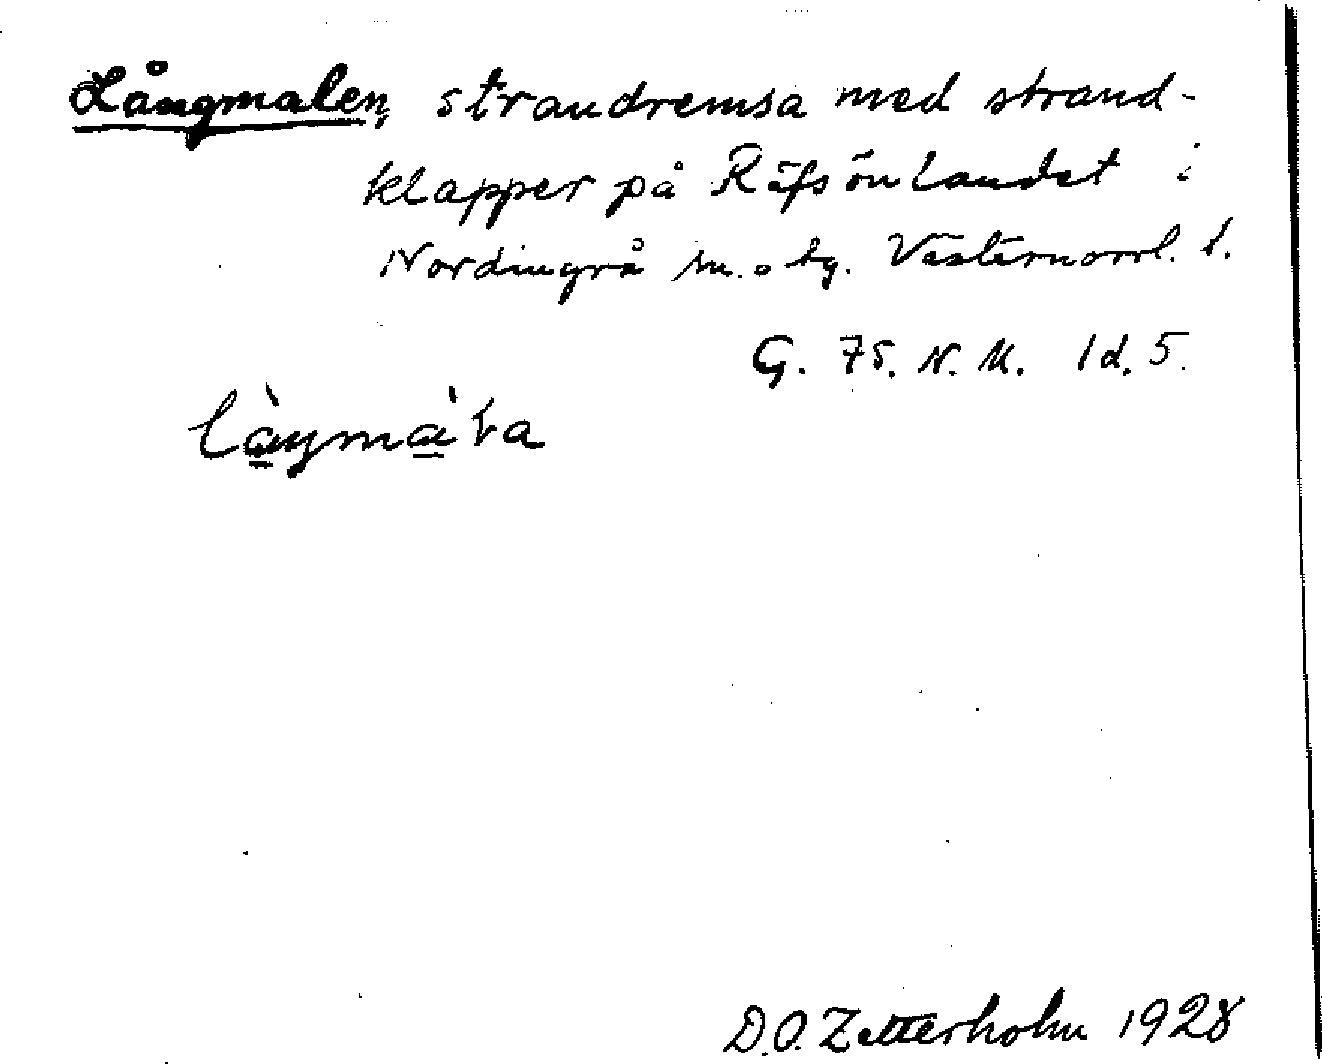 Långmalen, strandremsa med strand-
klapper på Räfsönlandet i
Nordingrå sn. o tg. Västernorrl. l.
G. 75. N. M. Id. 5.
D.O. Zetterholm 1928